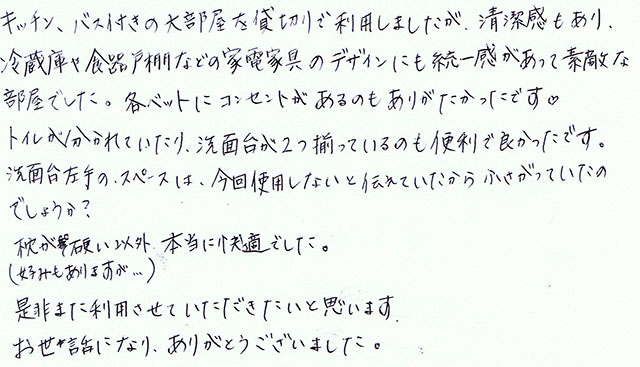 キッチン、バス付きの大部屋を貸切りで利用しましたが、清潔感もあり、
冷蔵庫や食器戸棚などの家電家具のデザインにも統一感があって素敵な
部屋でした。各ベットにコンセントがあるのもありがたかったです♡
トイレが分かれていたり、洗面台が2つ揃っているのも便利で良かったです。
洗面台左手の、スペースは、今回使用しないと伝えていたからふさがっていたの
でしょうか?
枕が硬い以外、本当に快適でした。
(好みもありますが…)
是非また利用させていただきたいと思います.
お世話になり、ありがとうございました。